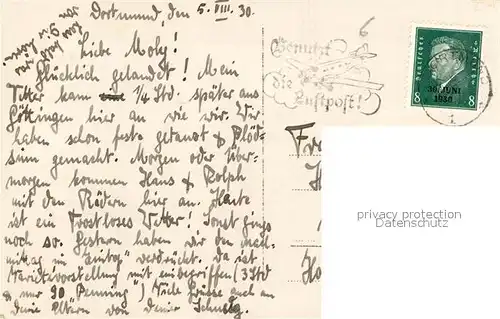 Dortmund, den 5. VIII. 30.
Liebe Moly!
Glücklich gelandet! Mein
Vetter kam ¼ Std. später aus
Göttingen hier an wie wir. Wir
haben schon feste getanzt & Blöd-
sinn gemacht. Morgen oder über-
morgen kommen Hans & Rolph
mit den Rädern hier an. Heute
ist ein Wetter! Sonst gings
noch so. Gestern haben wir den nach-
mittag im verdrückt. Da ist
Varietévorstellung mit einbegriffen (3 Std
& nur 90 Pfennig) Viele Grüsse auch an
deine Eltern von deiner
6
Benutzt
die
Luftpost!
Deutsches Reich
30. JUNI
1930
8 8
Fr
H
Ho
privacy protection
Datenschutz